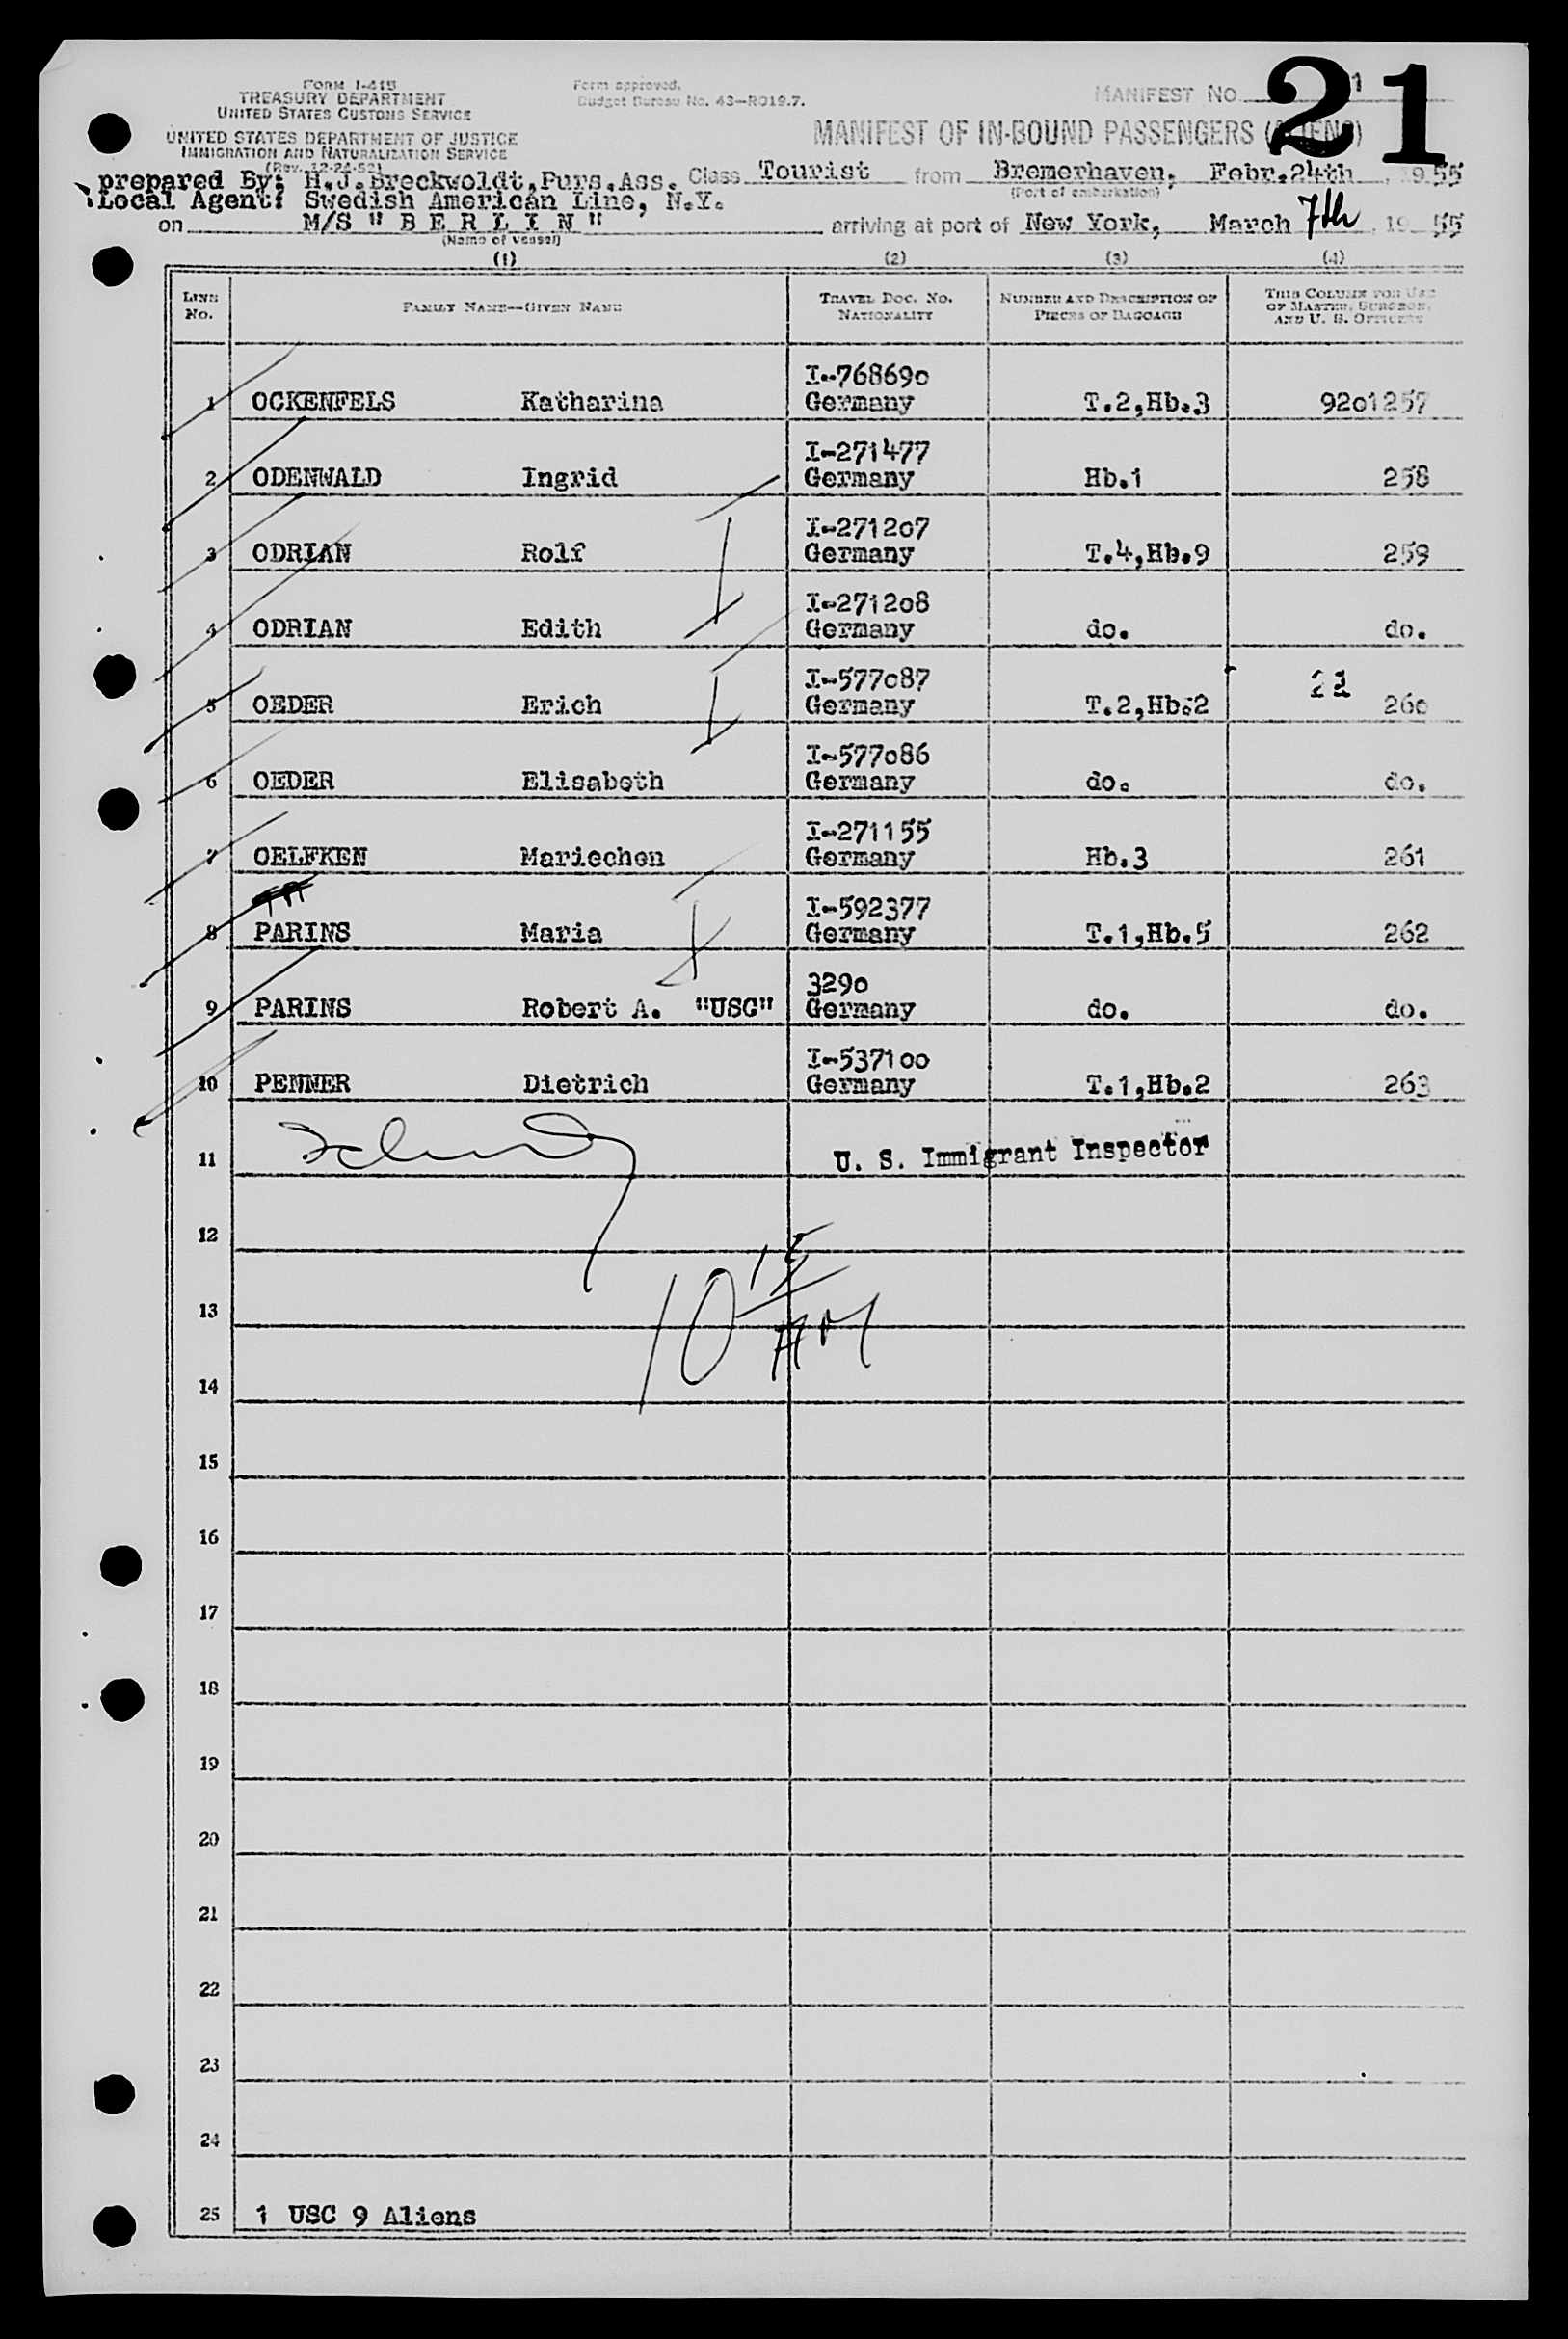 FORM I-418
TREASURY DEPARTMENT
UNITED STATES CUSTOMS SERVICE
UNITED STATES DEPARTMENT OF JUSTICE
IMMIGRATION AND NATURALIZATION SERVICE
(Rev. 12-24-52)
Form approved.
Budget Bureau No. 43-R019.7.
MANIFEST NO. 1
21
MANIFEST OF IN-BOUND PASSENGERS (ALIENS)
prepared By: H.J.Breckwoldt,Purs.Ass. Class Tourist from Bremerhaven, Febr.24th, 1955
(Port of embarkation)
Local Agent: Swedish American Line, N.Y.
on M/S " B E R L I N " arriving at port of New York, March 7th, 1955
(Name of vessel)
(1) (2) (3) (4)
LINE NO. FAMILY NAME—GIVEN NAME TRAVEL DOC. NO. NATIONALITY NUMBER AND DESCRIPTION OF PIECES OF BAGGAGE THIS COLUMN FOR USE OF MASTER, SURGEON, AND U. S. OFFICERS
I-768690
1 OCKENFELS Katharina Germany T.2,Hb.3 9201257
I-271477
2 ODENWALD Ingrid Germany Hb.1 258
I-271207
3 ODRIAN Rolf Germany T.4,Hb.9 259
I-271208
4 ODRIAN Edith Germany do. do.
I-577087
21
5 OEDER Erich Germany T.2,Hb.2 260
I-577086
6 OEDER Elisabeth Germany do. do.
I-271155
7 OELFKEN Mariechen Germany Hb.3 261
I-592377
8 PARINS Maria Germany T.1,Hb.5 262
3290
9 PARINS Robert A. "USC" Germany do. do.
I-537100
10 PENNER Dietrich Germany T.1,Hb.2 263
11 U. S. Immigrant Inspector
12
13 10 15 AM
14
15
16
17
18
19
20
21
22
23
24
25 1 USC 9 Aliens